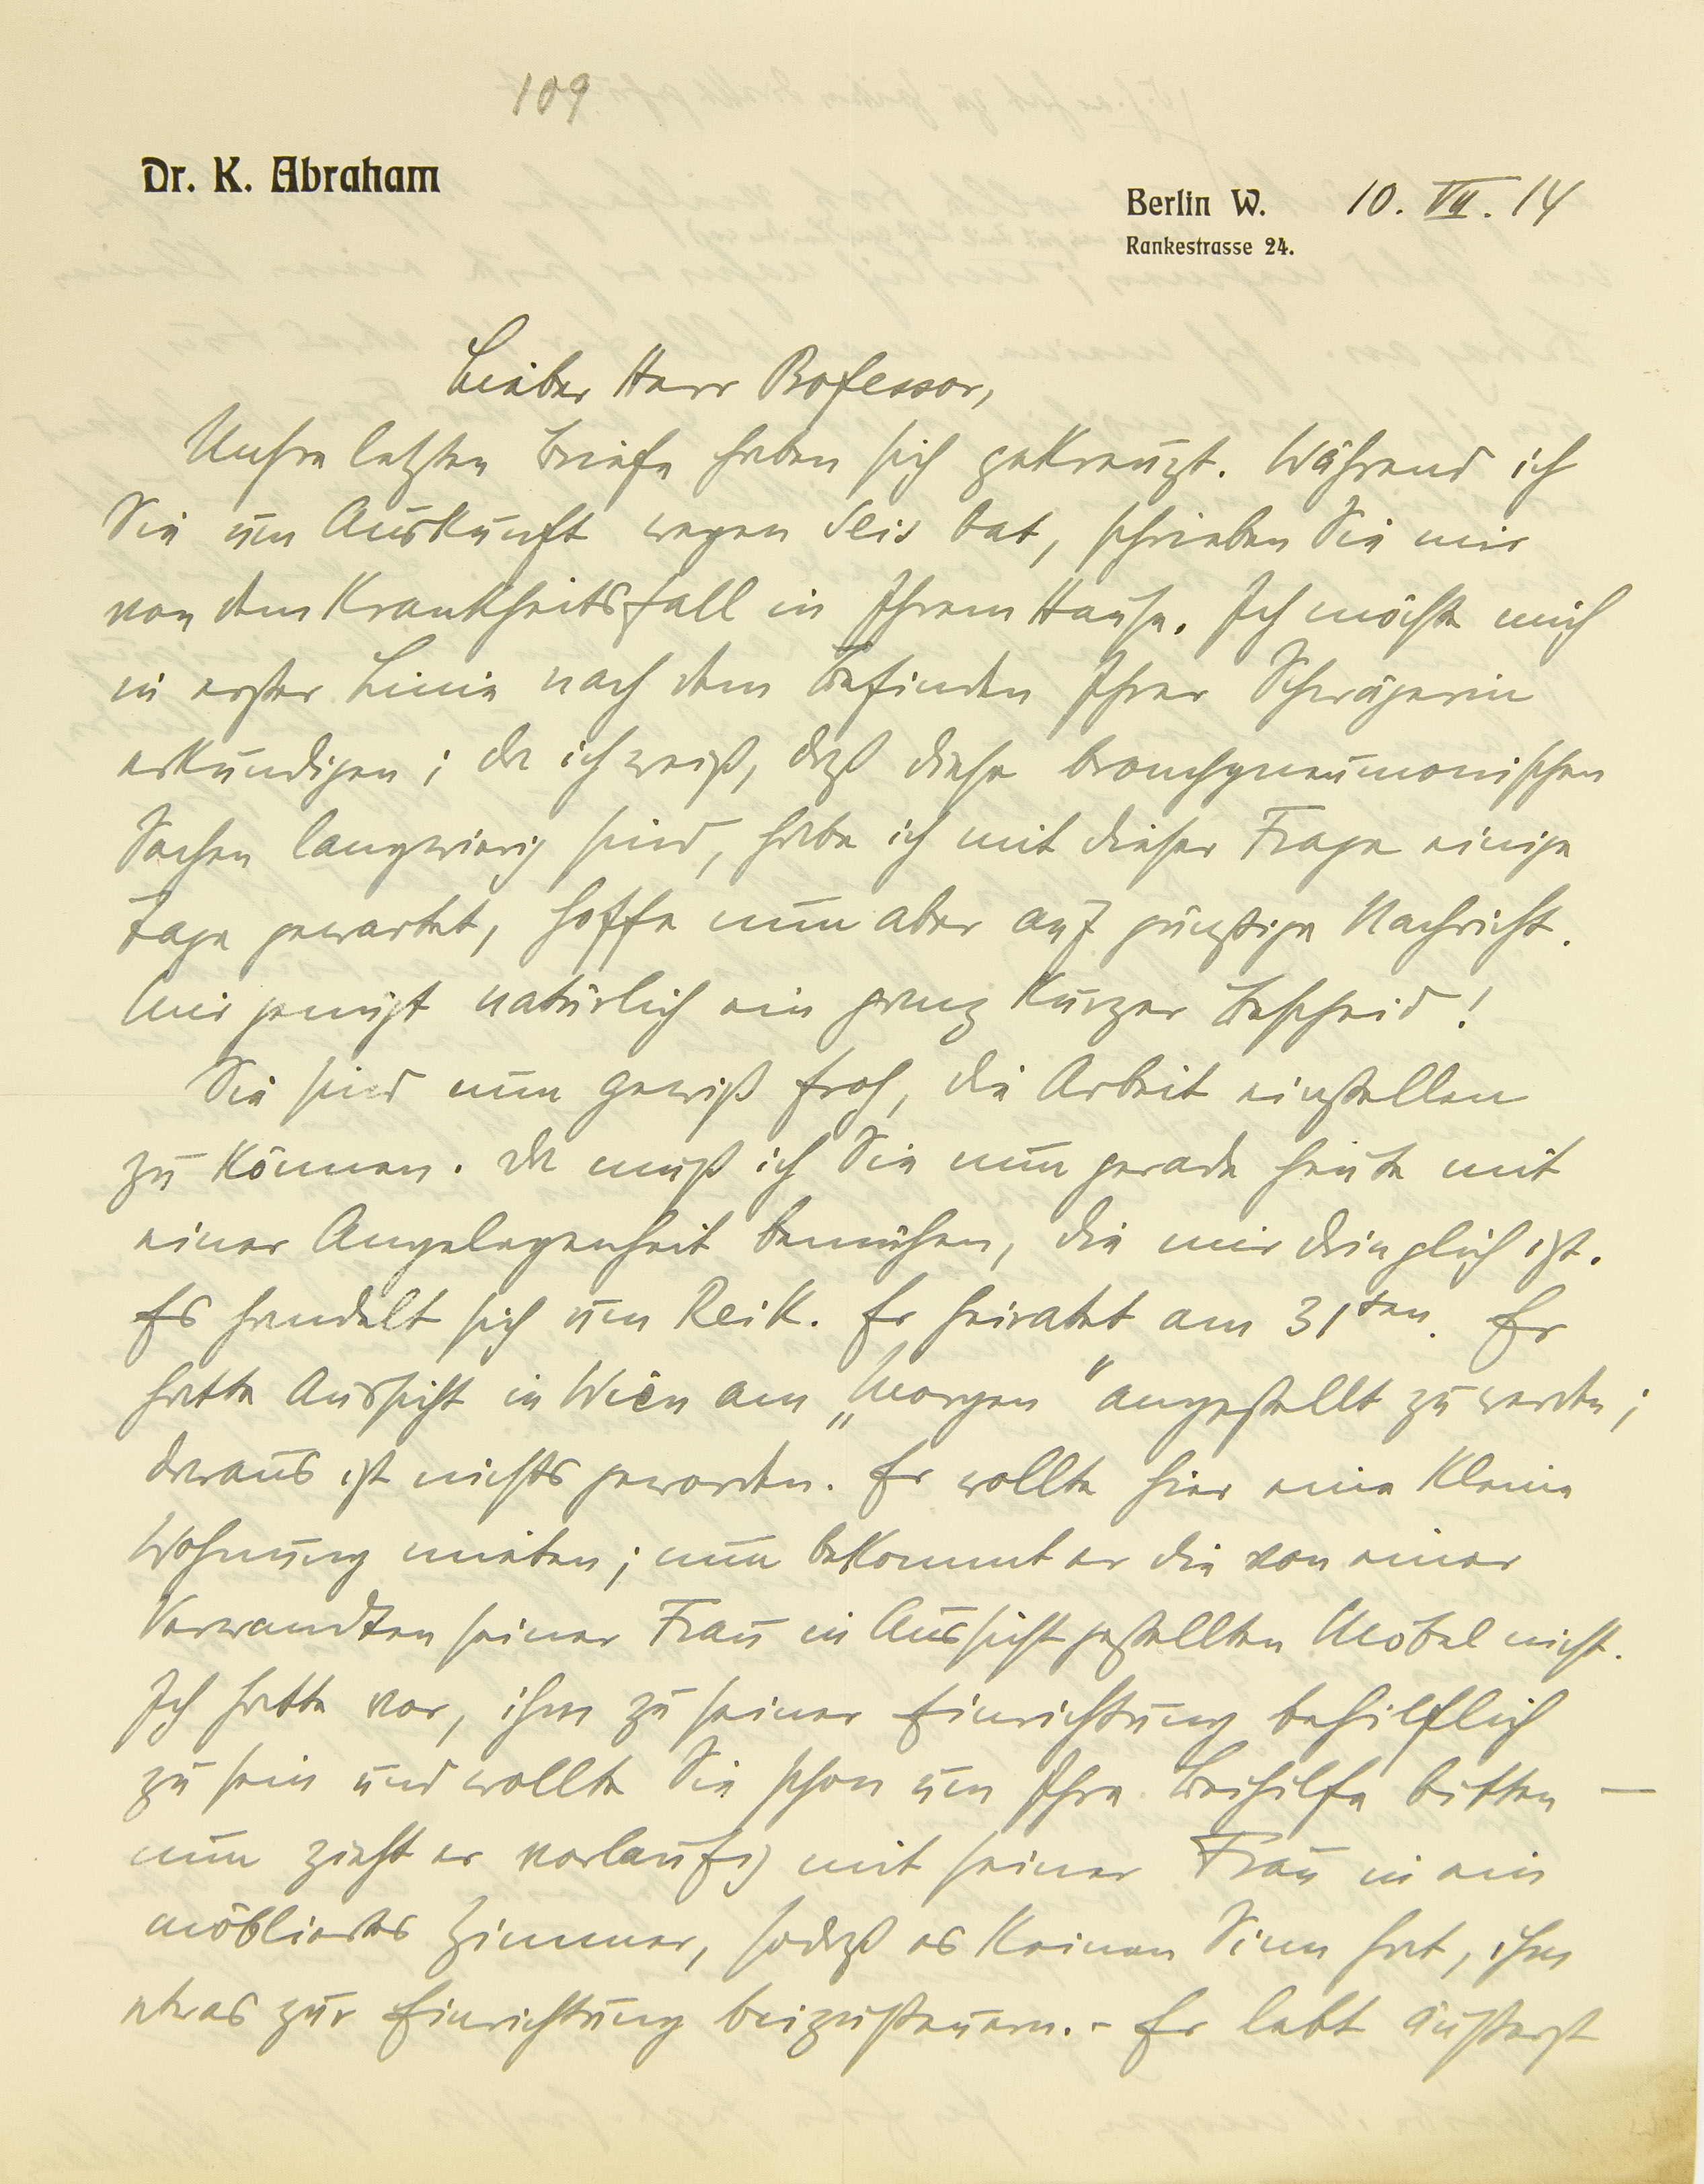 109
Dr. K. Abraham
Berlin W. 10. VII. 14
Rankestrasse 24.
Lieber Herr Professor,
Unsre letzten Briefe haben sich gekreuzt. Während ich
Sie um Auskunft wegen Seis bat, schrieben Sie mir
von dem Krankheitsfall in Ihrem Hause. Ich möchte mich
in erster Linie nach dem Befinden Ihrer Schwägerin
erkundigen; da ich weiß, daß diese bronchpneumonischen
Sachen langwierig sind, habe ich mit dieser Frage einige
Tage gewartet, hoffe nun aber auf günstige Nachricht.
Mir genügt natürlich ein ganz kurzer Bescheid!
Sie sind nun gewiß froh, die Arbeit einstellen
zu können. Da muß ich Sie nun gerade heute mit
einer Angelegenheit bemühen, die mir dringlich ist.
Es handelt sich um Reik. Er heiratet am 31ten. Er
hatte Aussicht in Wien am „Morgen" angestellt zu werden;
daraus ist nichts geworden. Er wollte hier eine kleine
Wohnung mieten; nun bekommt er die von einer
Verwandten seiner Frau in Aussicht gestellten Möbel nicht.
Ich hatte vor, ihm zu seiner Einrichtung behilflich
zu sein und wollte Sie schon um Ihre Beihilfe bitten —
nun zieht er vorläufig mit seiner Frau in ein
möbliertes Zimmer, sodaß es keinen Sinn hat, ihm
etwas zur Einrichtung beizusteuern. - Er lebt äußerst